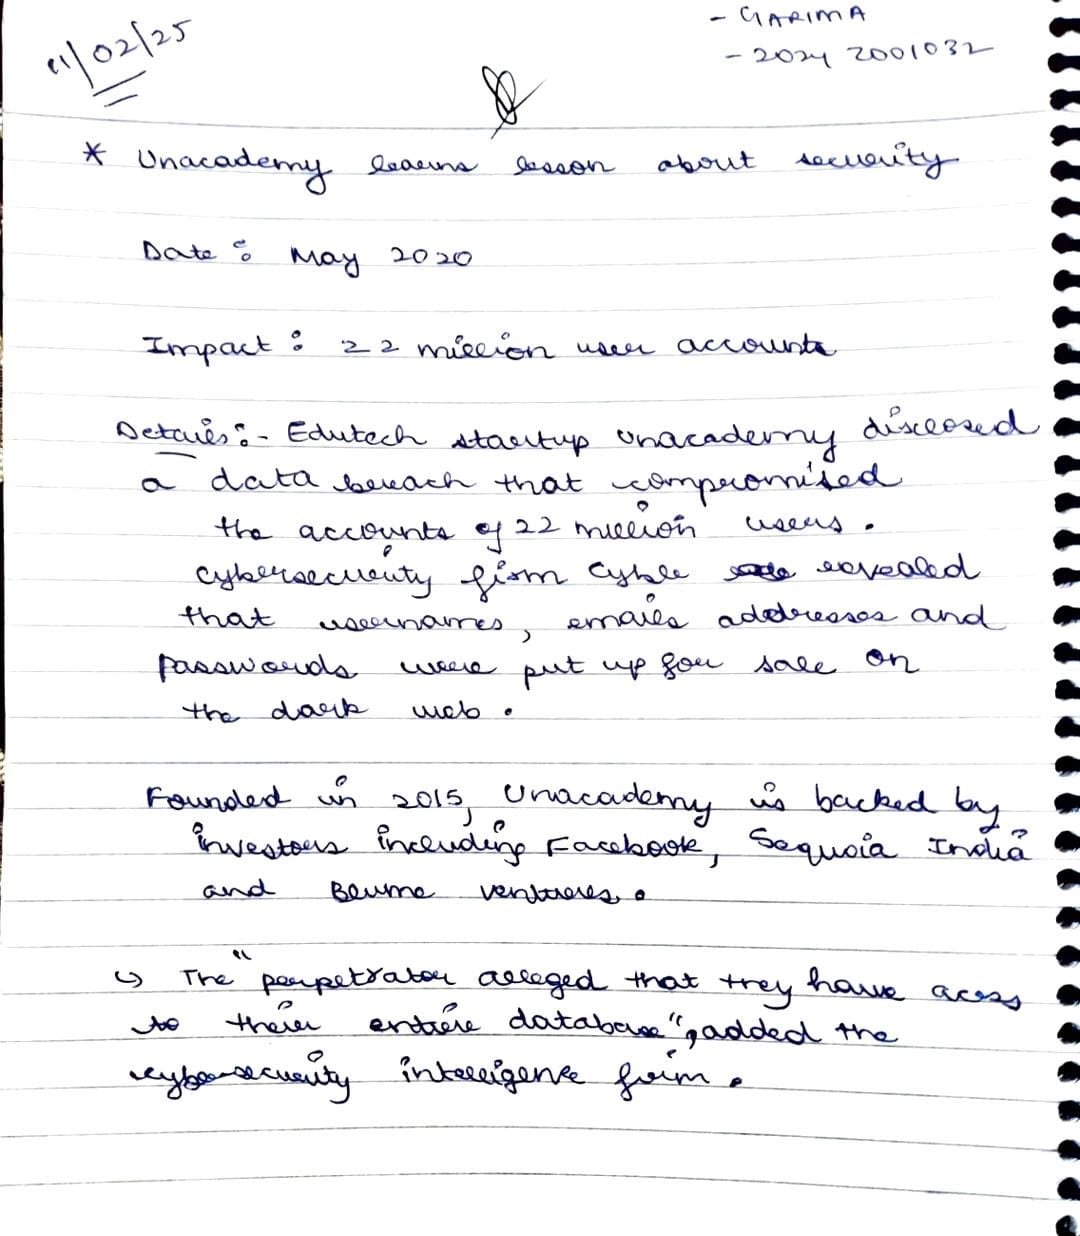 11/02/25
- GARIMA
- 2024 2001032
* Unacademy learns lesson about security
Date : May 2020
Impact : 22 million user accounts
Details :- Edutech startup unacademy disclosed
a data breach that compromised
the accounts of 22 million users.
Cybersecurity firm Cyble revealed
that usernames, emails addresses and
passwords were put up for sale on
the dark web.
Founded in 2015, Unacademy is backed by
investors including Facebook, Sequoia India
and Blume ventures.
↳ The "perpetrator alleged that they have acess
to their entire database", added the
cybersecurity intelligence firm.